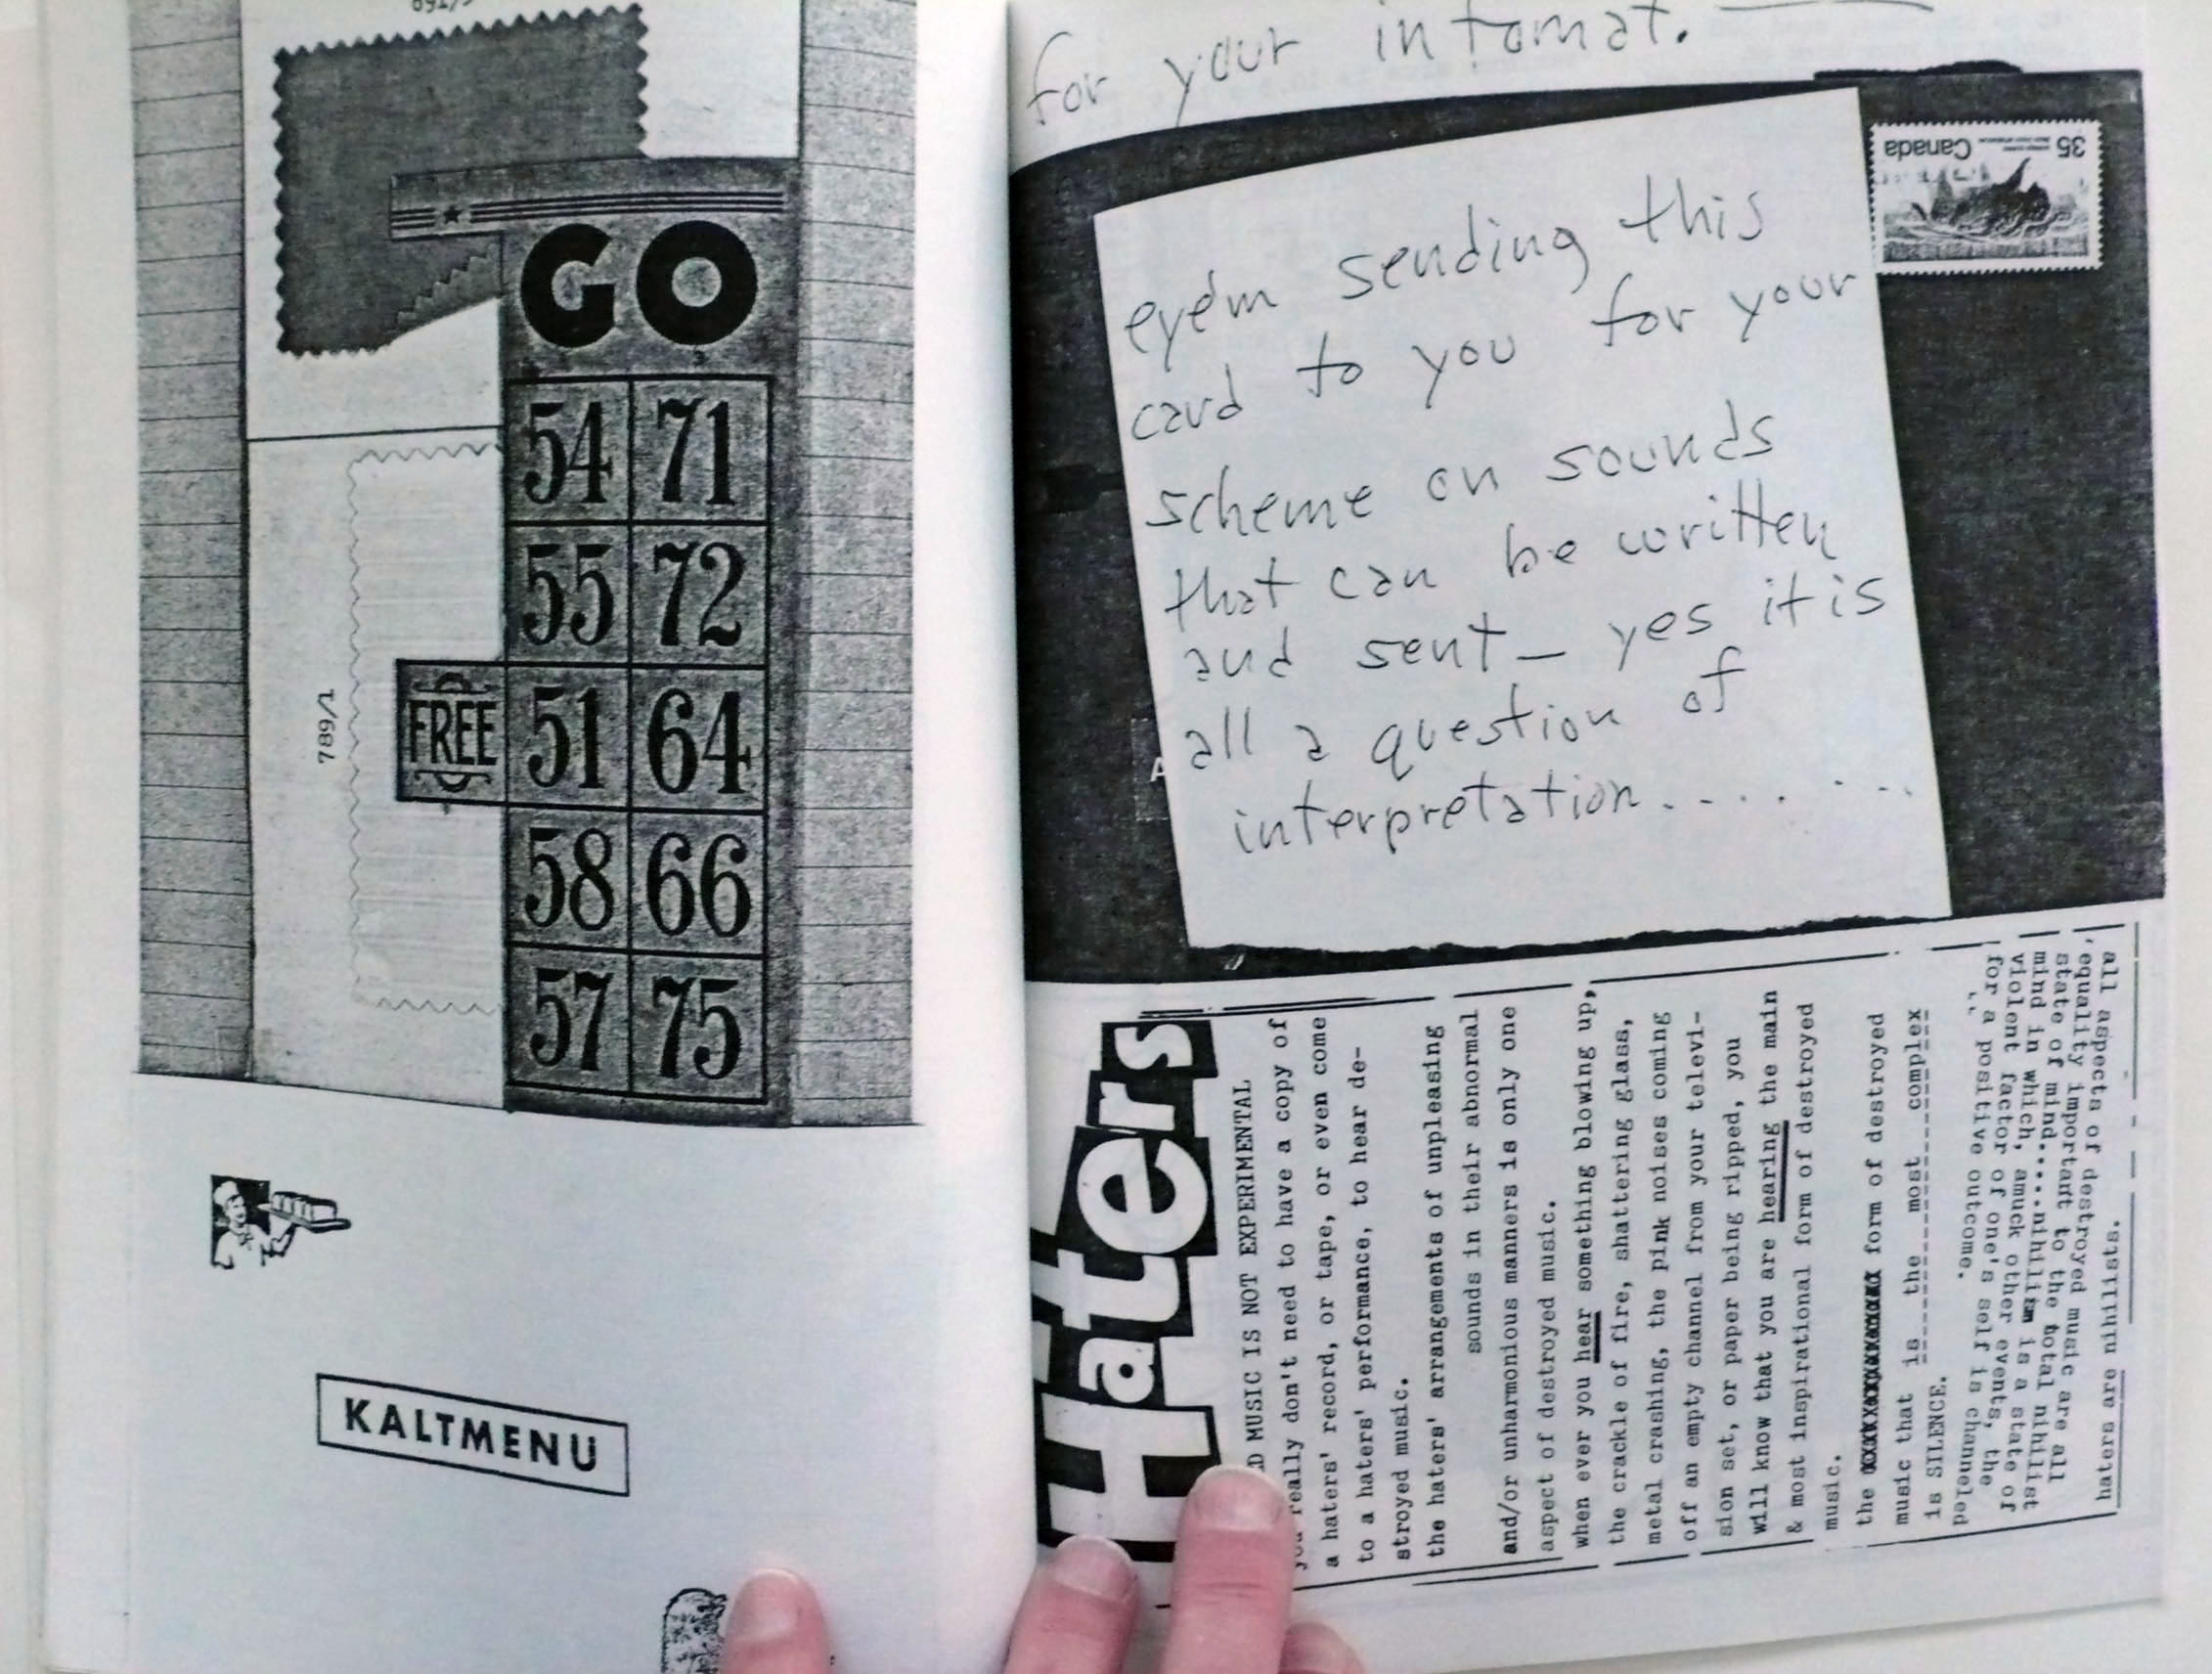 GO
54 71
55 72
FREE 51 64
58 66
57 75
789/1
KALTMENU
for your intomat.
35
Canada
eyem sending this
card to you for your
scheme on sounds
that can be written
and sent — yes it is
all a question of
interpretation........
Haters
D MUSIC IS NOT EXPERIMENTAL
you really don't need to have a copy of
a haters' record, or tape, or even come
to a haters' performance, to hear de-
stroyed music.
the haters' arrangements of unpleasing
sounds in their abnormal
and/or unharmonious manners is only one
aspect of destroyed music.
when ever you hear something blowing up,
the crackle of fire, shattering glass,
metal crashing, the pink noises coming
off an empty channel from your televi-
sion set, or paper being ripped, you
will know that you are hearing the main
& most inspirational form of destroyed
music.
the form of destroyed
music that is the most complex
is SILENCE.
all aspects of destroyed music are all
equality important to the total nihilist
state of mind.....nihilism is a state of
mind in which, amuck other events, the
violent factor of one's self is channeled
for a positive outcome.
haters are nihilists.